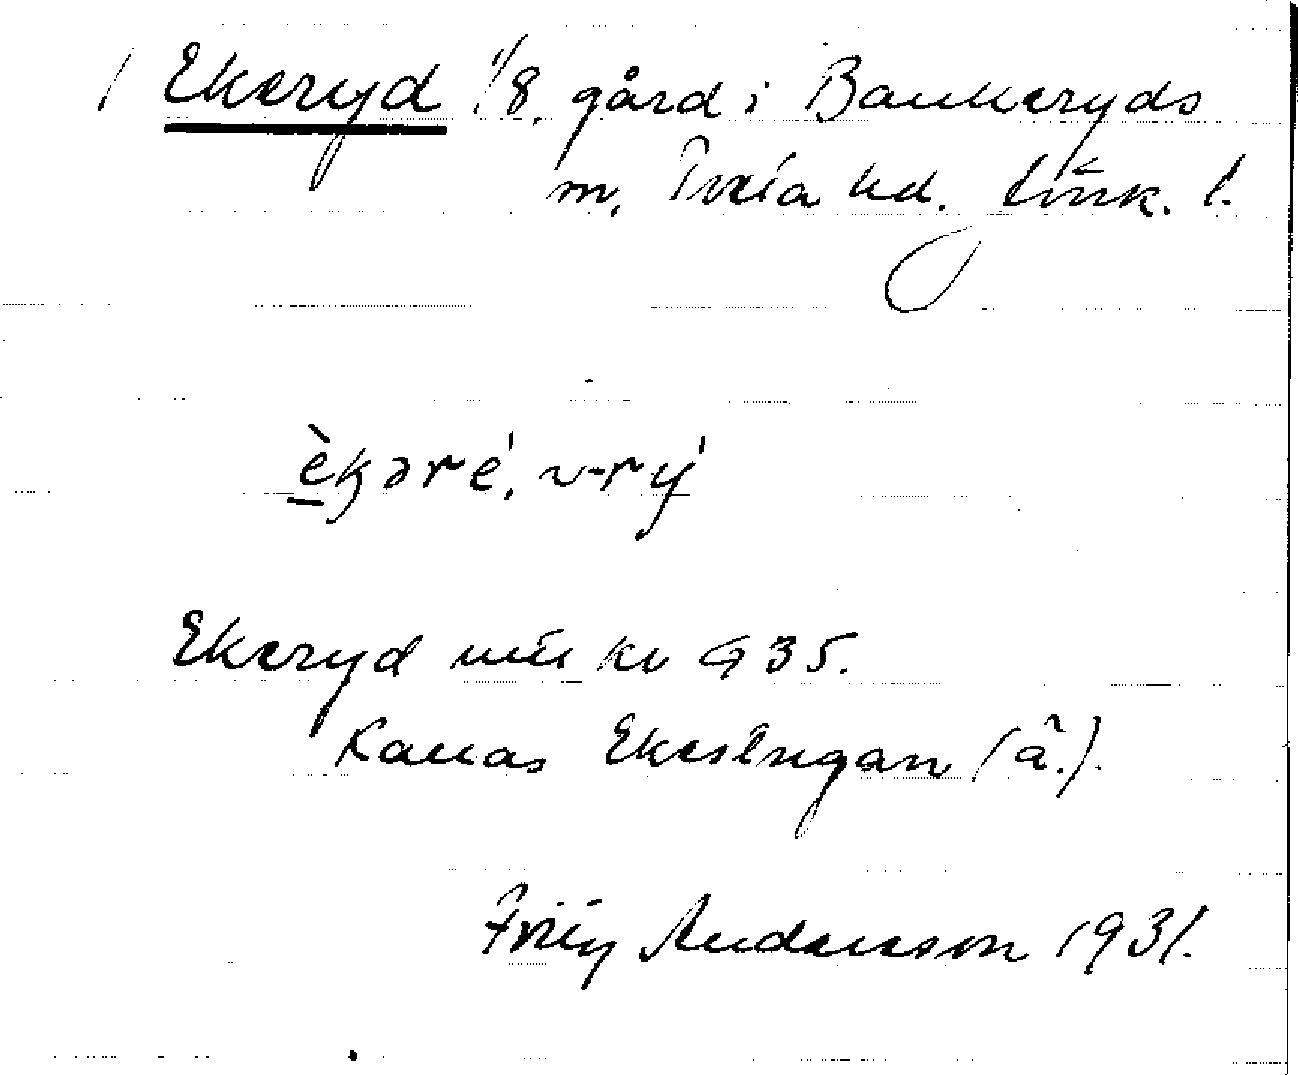 / Ekeryd 1/8, gård i Bankeryds
sn, Tveta hd. Jönk. l.
èkəré, ~-rý
Ekeryd min kv 935.
Kallas Ekeslugan (ä.).
Fritz Andersson 1931.